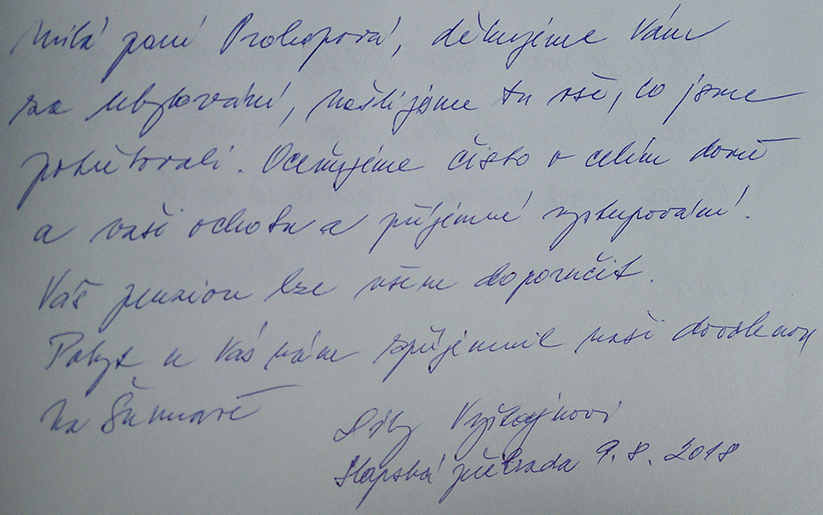 Milá paní Prokopová, děkujeme Vám
za ubytování, našli jsme tu vše, co jsme
potřebovali. Oceňujeme čisto v celém domě
a vaši ochotu a příjemné vystupování.
Váš penzion lze všem doporučit.
Pobyt u Vás nám zpříjemnil naši dovolenou
na Šumavě
Slapská přehrada 9.8.2018